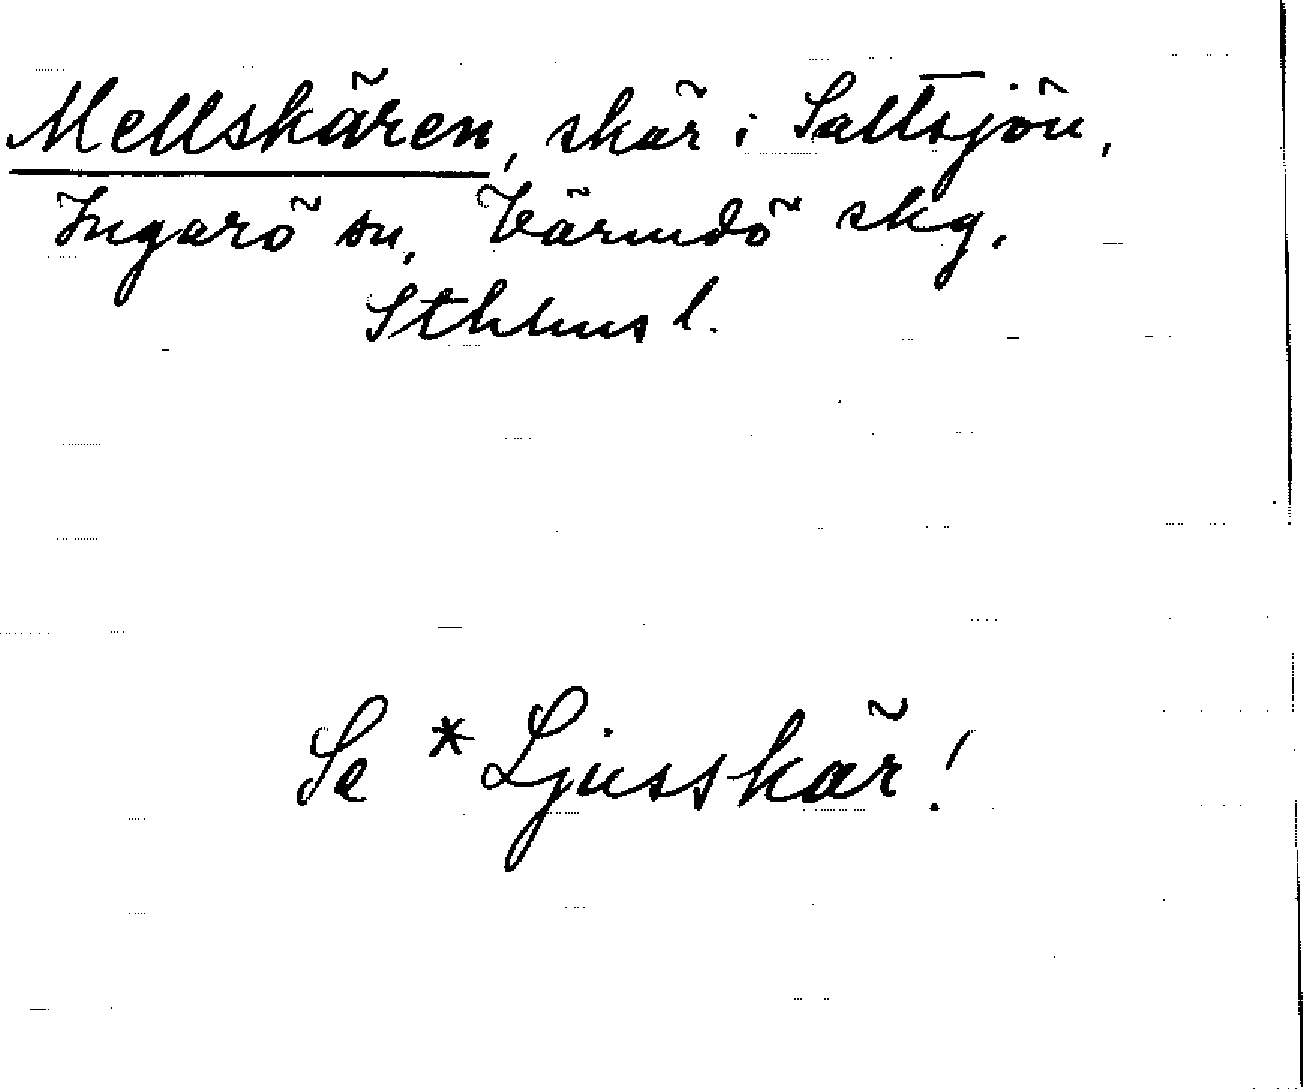 Mellskären, skär i Saltsjön,
Ingarö sn, Värmdö skg,
Sthlms l.
Se *Ljusskär!